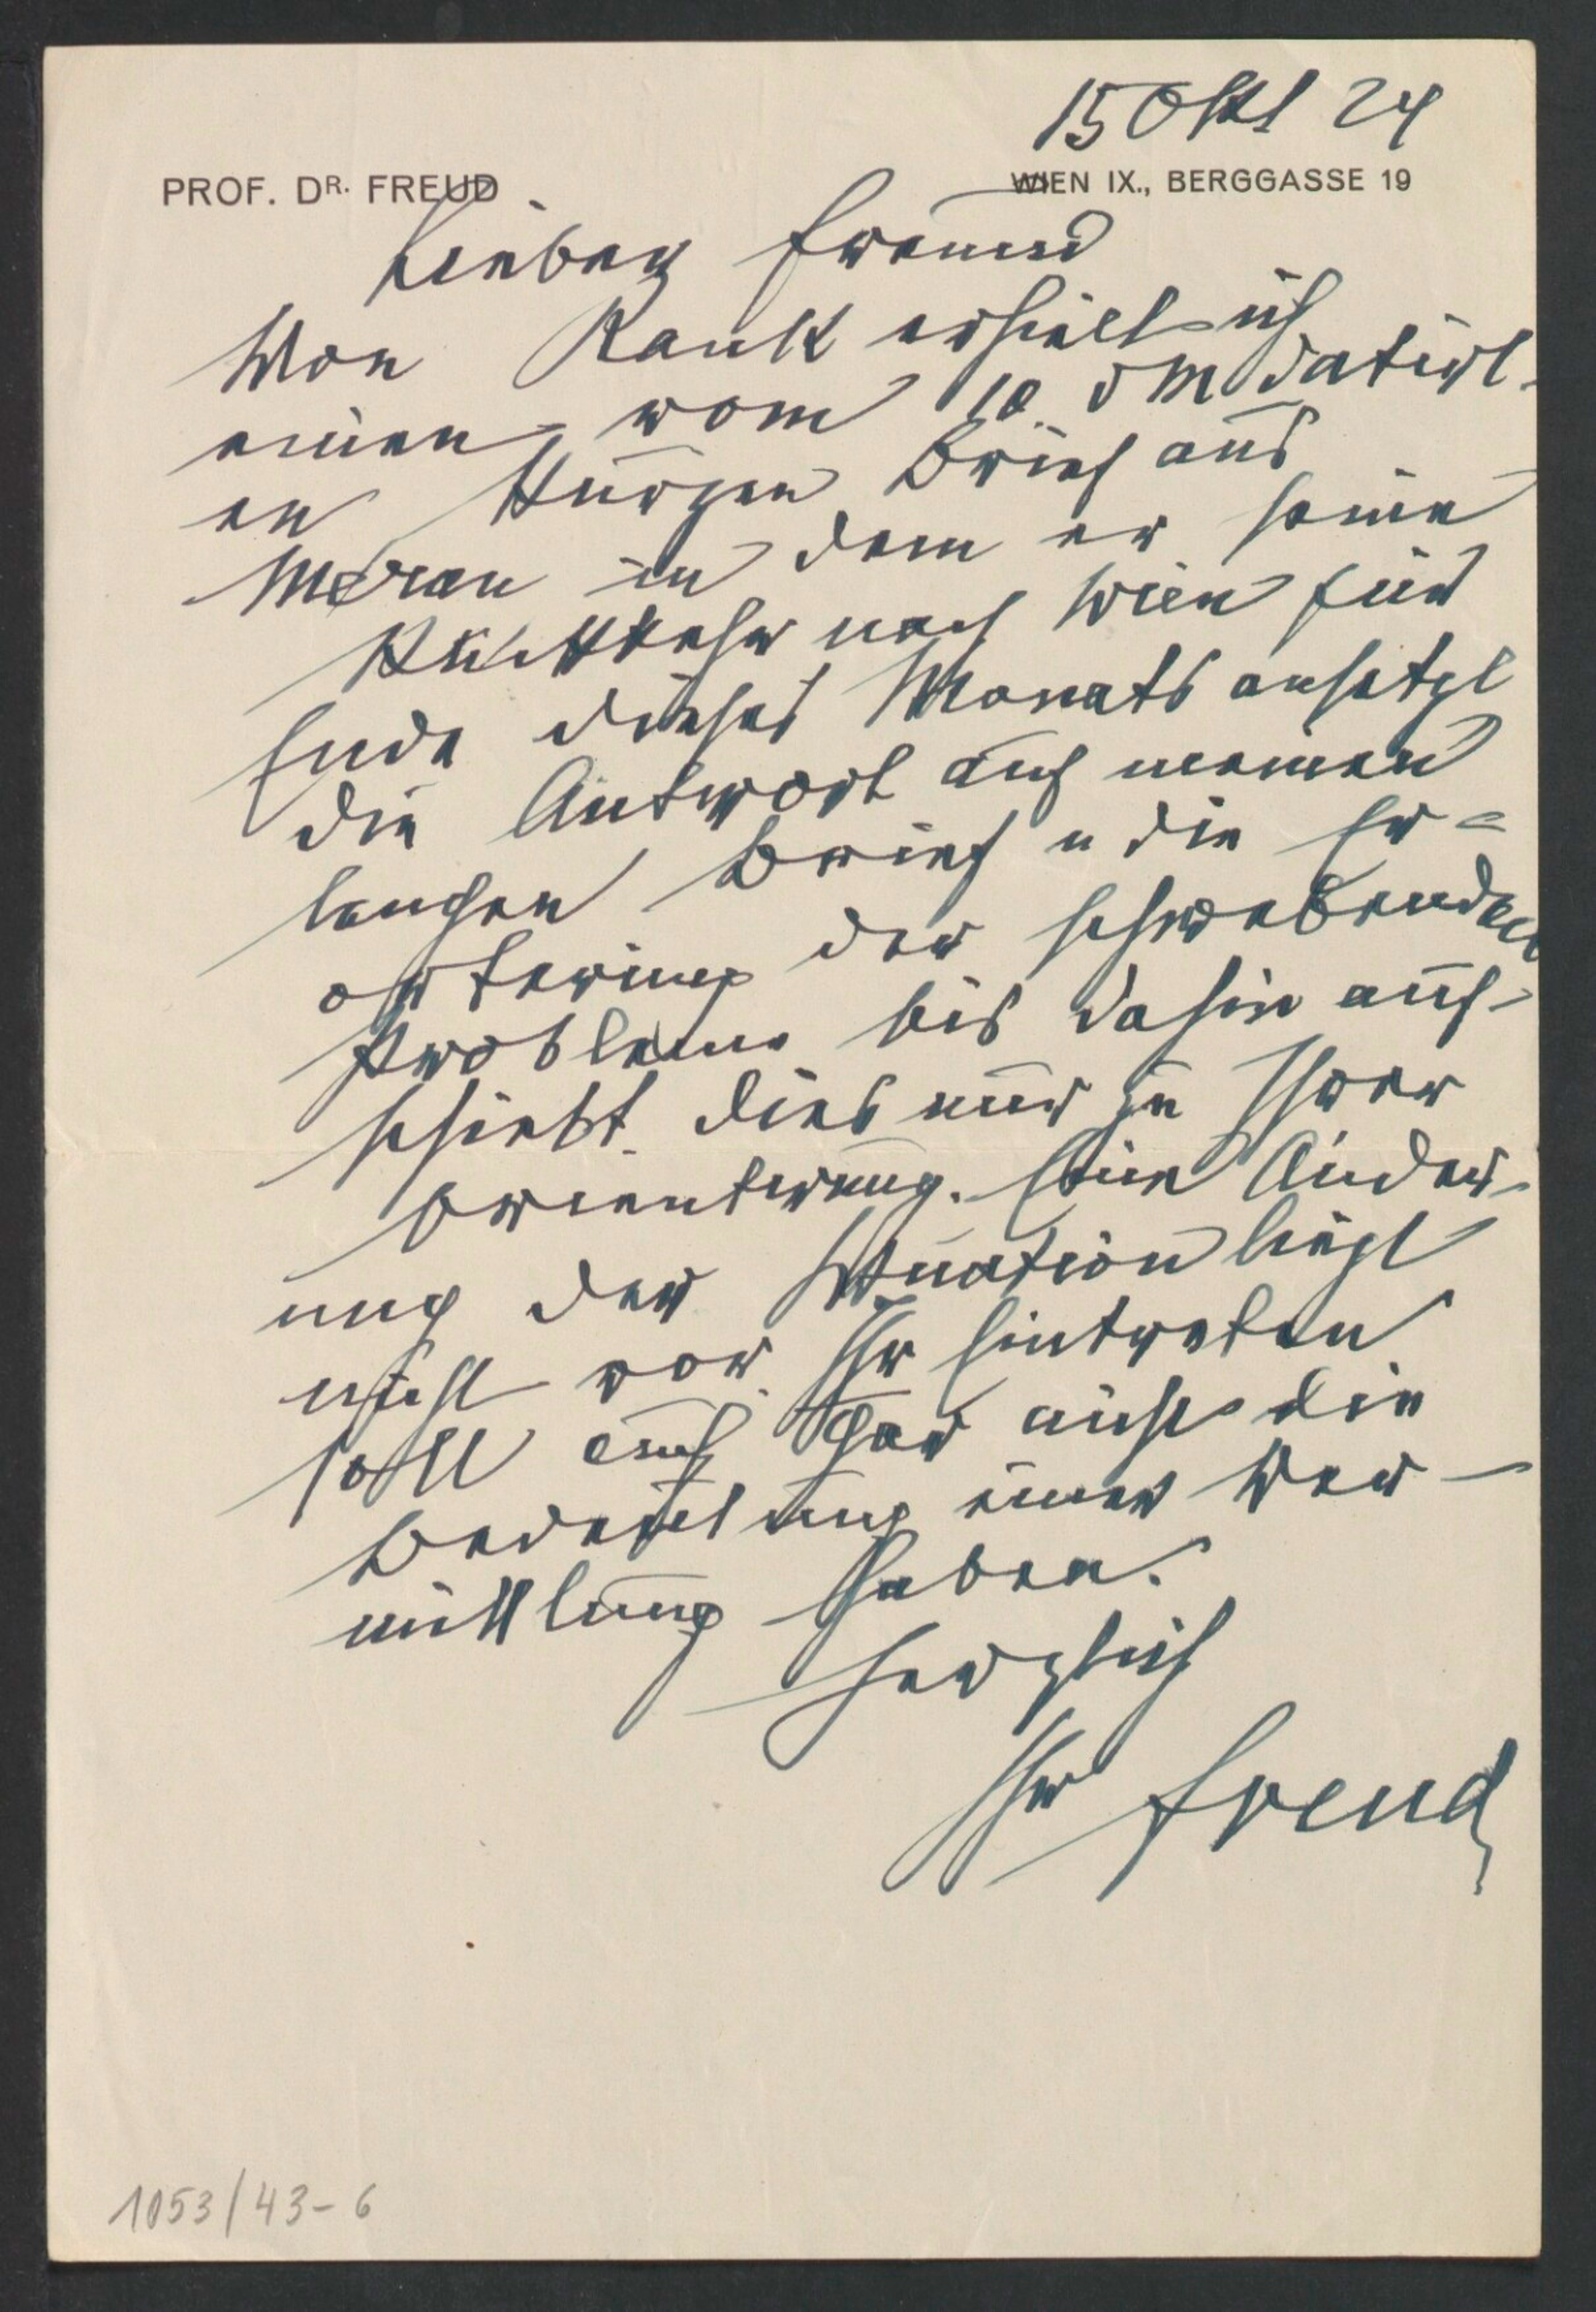 15 Okt 24
PROF. DR. FREUD WIEN IX., BERGGASSE 19
Lieber Freund
Von Rank erhielt ich
einen vom 10. d M datirt-
en kurzen Brief aus
Meran in dem er seine
Rückkehr nach Wien für
Ende dieses Monats ansetzt
die Antwort auf meinen
langen Brief u die Er=
örterung der schwebenden
Probleme bis dahin auf-
schiebt. Dies nur zu Ihrer
Orientirung. Eine Änder-
ung der Situation liegt
nicht vor. Ihr hintreten
soll auch gar nicht die
Bedeutung einer Ver-
mittlung haben.
Herzlich
Ihr Freud
1053/43-6